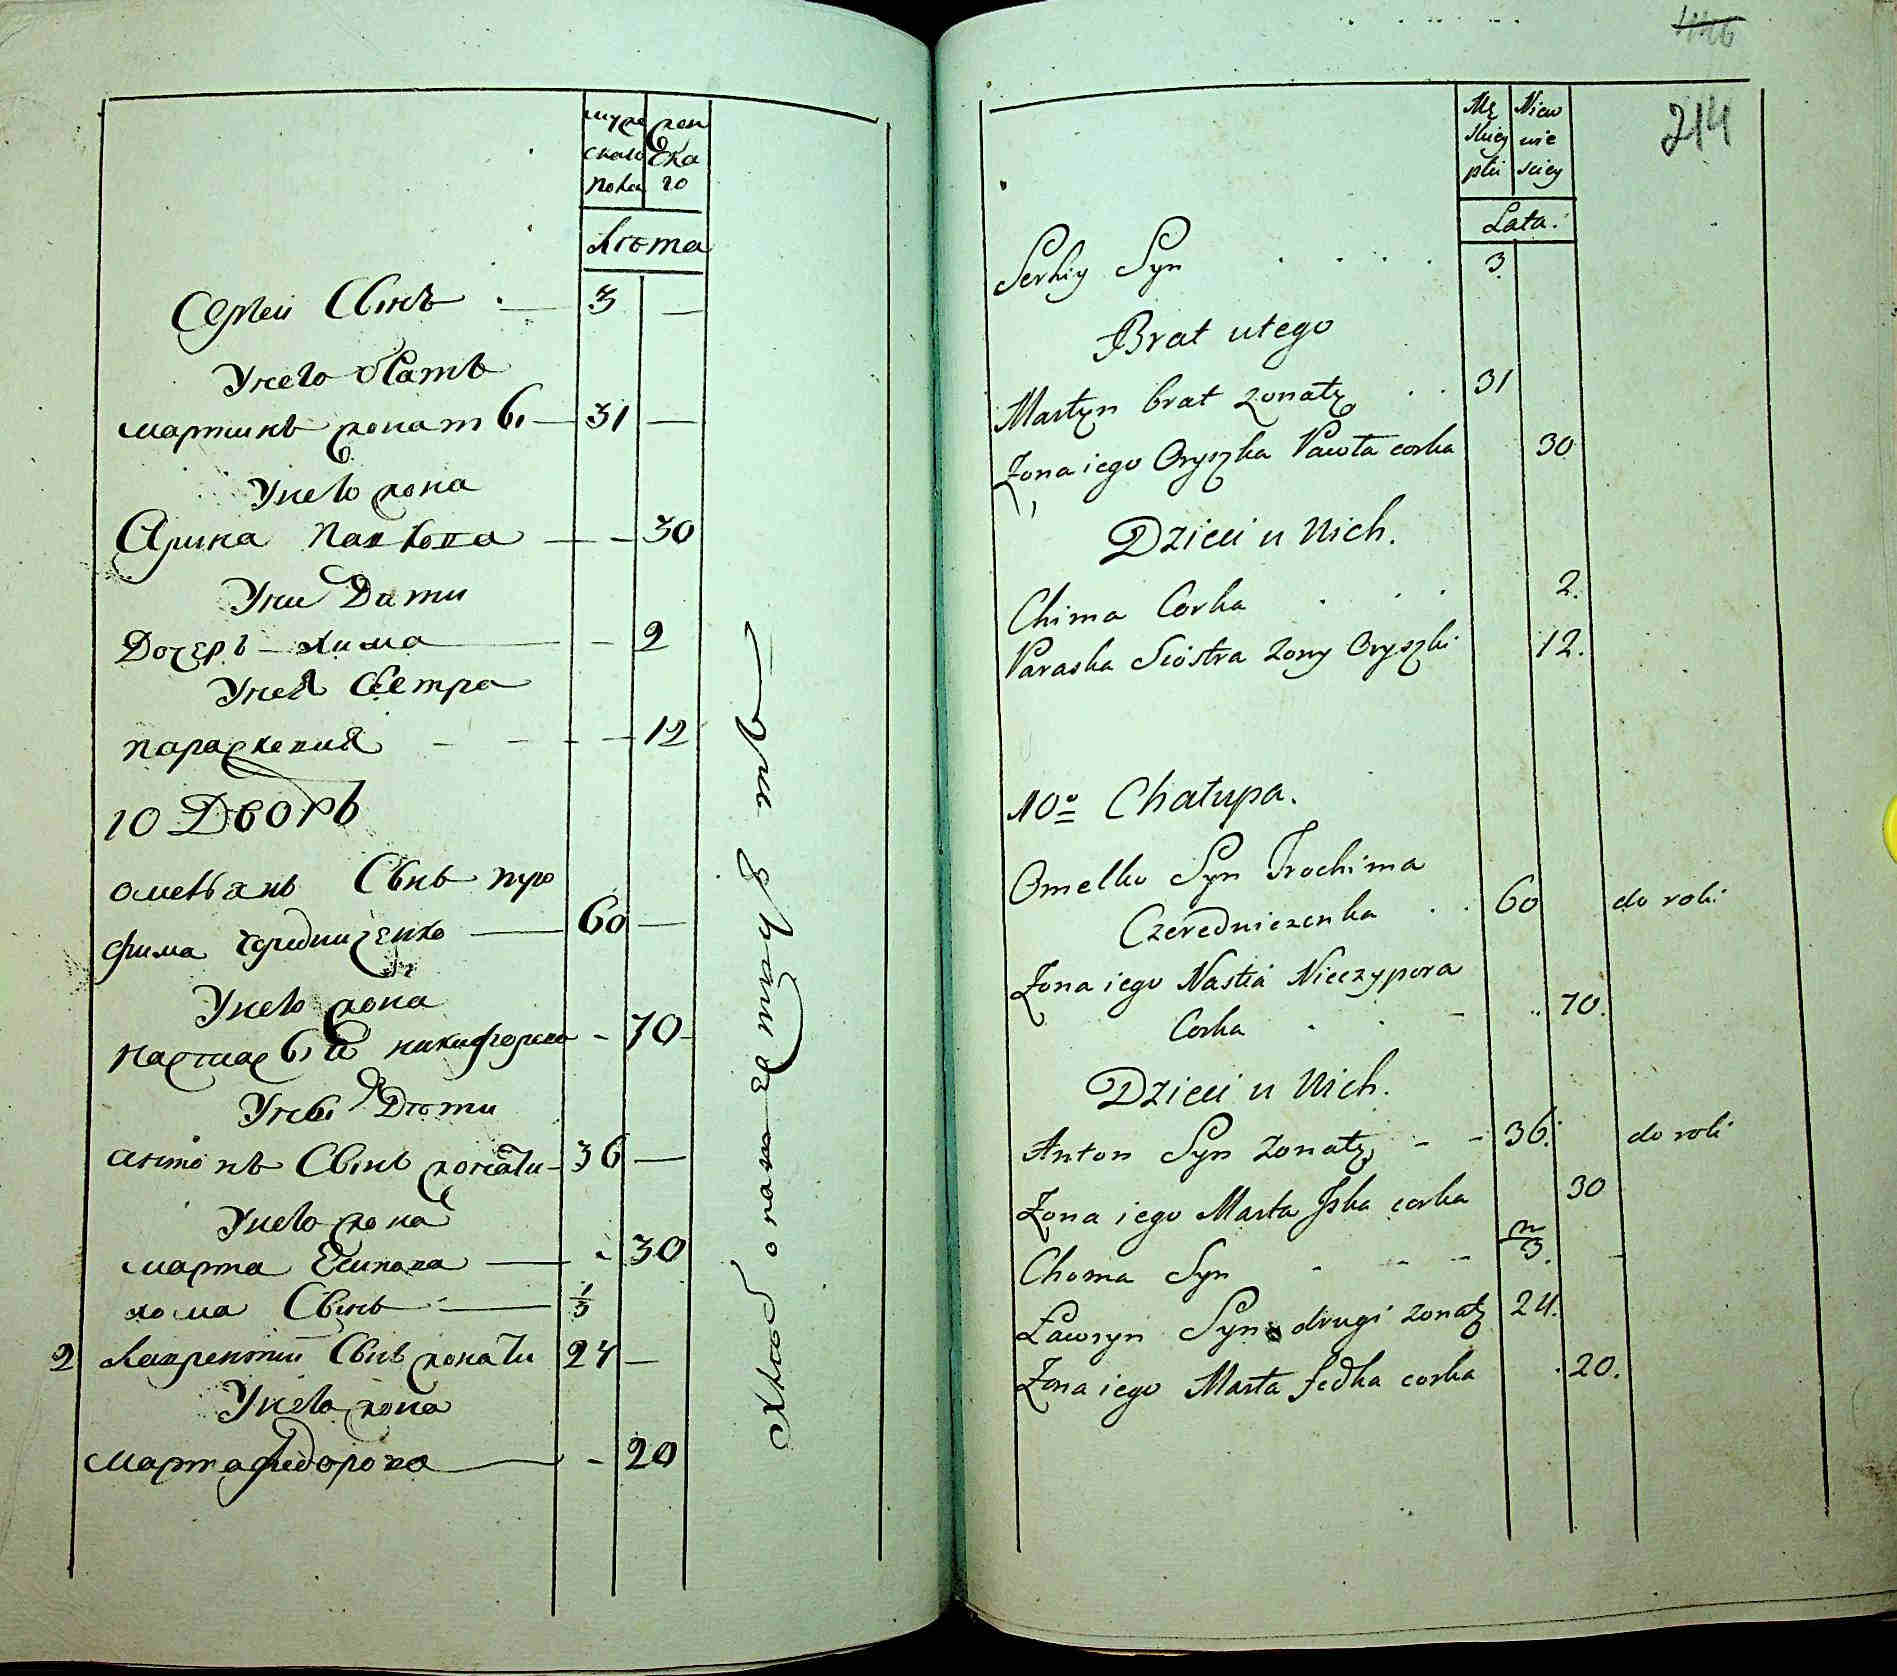 муже жен
скаго ска
пола го
Лѣта
Сергѣй Сынъ . — 3 —
У него братъ
мартинъ женатъ — 31 —
У него жона
Арина Павлова — — 30
У ни Дѣти
Дочерь — хима — 2
У нея Сестра
параскевия — — — 12
10 Дворъ
омельянъ Сынъ тро
фима чередниченко — 60 —
У него жона
настасья никифорова - 70 -
У ных Дѣти
антонъ Сынъ женаты - 36 —
У него жона
марта Есипова — - 30
хома Сынъ — 1/3
2 Лаврентий Сынъ женаты 24 —
У него жона
марта федорова — - 20
Хлѣбопашествуетъ
446
214
Mę Niew
skiey nie
płci sciey
Lata.
Serhiy Syn . . . . . 3.
Brat u tego
Martyn brat zonaty . . 31
Zona iego Oryszka Pawła corka 30
Dzieci u Nich.
Chima Corka . . . 2.
Paraska Siostra zony Oryszki 12.
10o Chałupa.
Omelko Syn Trochima
Czeredniczenka . . 60 do roli
Zona iego Nastia Nieczypora
Corka . . - .. 70.
Dzieci u Nich.
Anton Syn zonaty - - 36. do roli
Zona iego Marta Jska corka 30
Choma Syn - - - n/3. -
Ławryn Syn drugi zonaty 24.
Zona iego Marta fedka corka . 20.